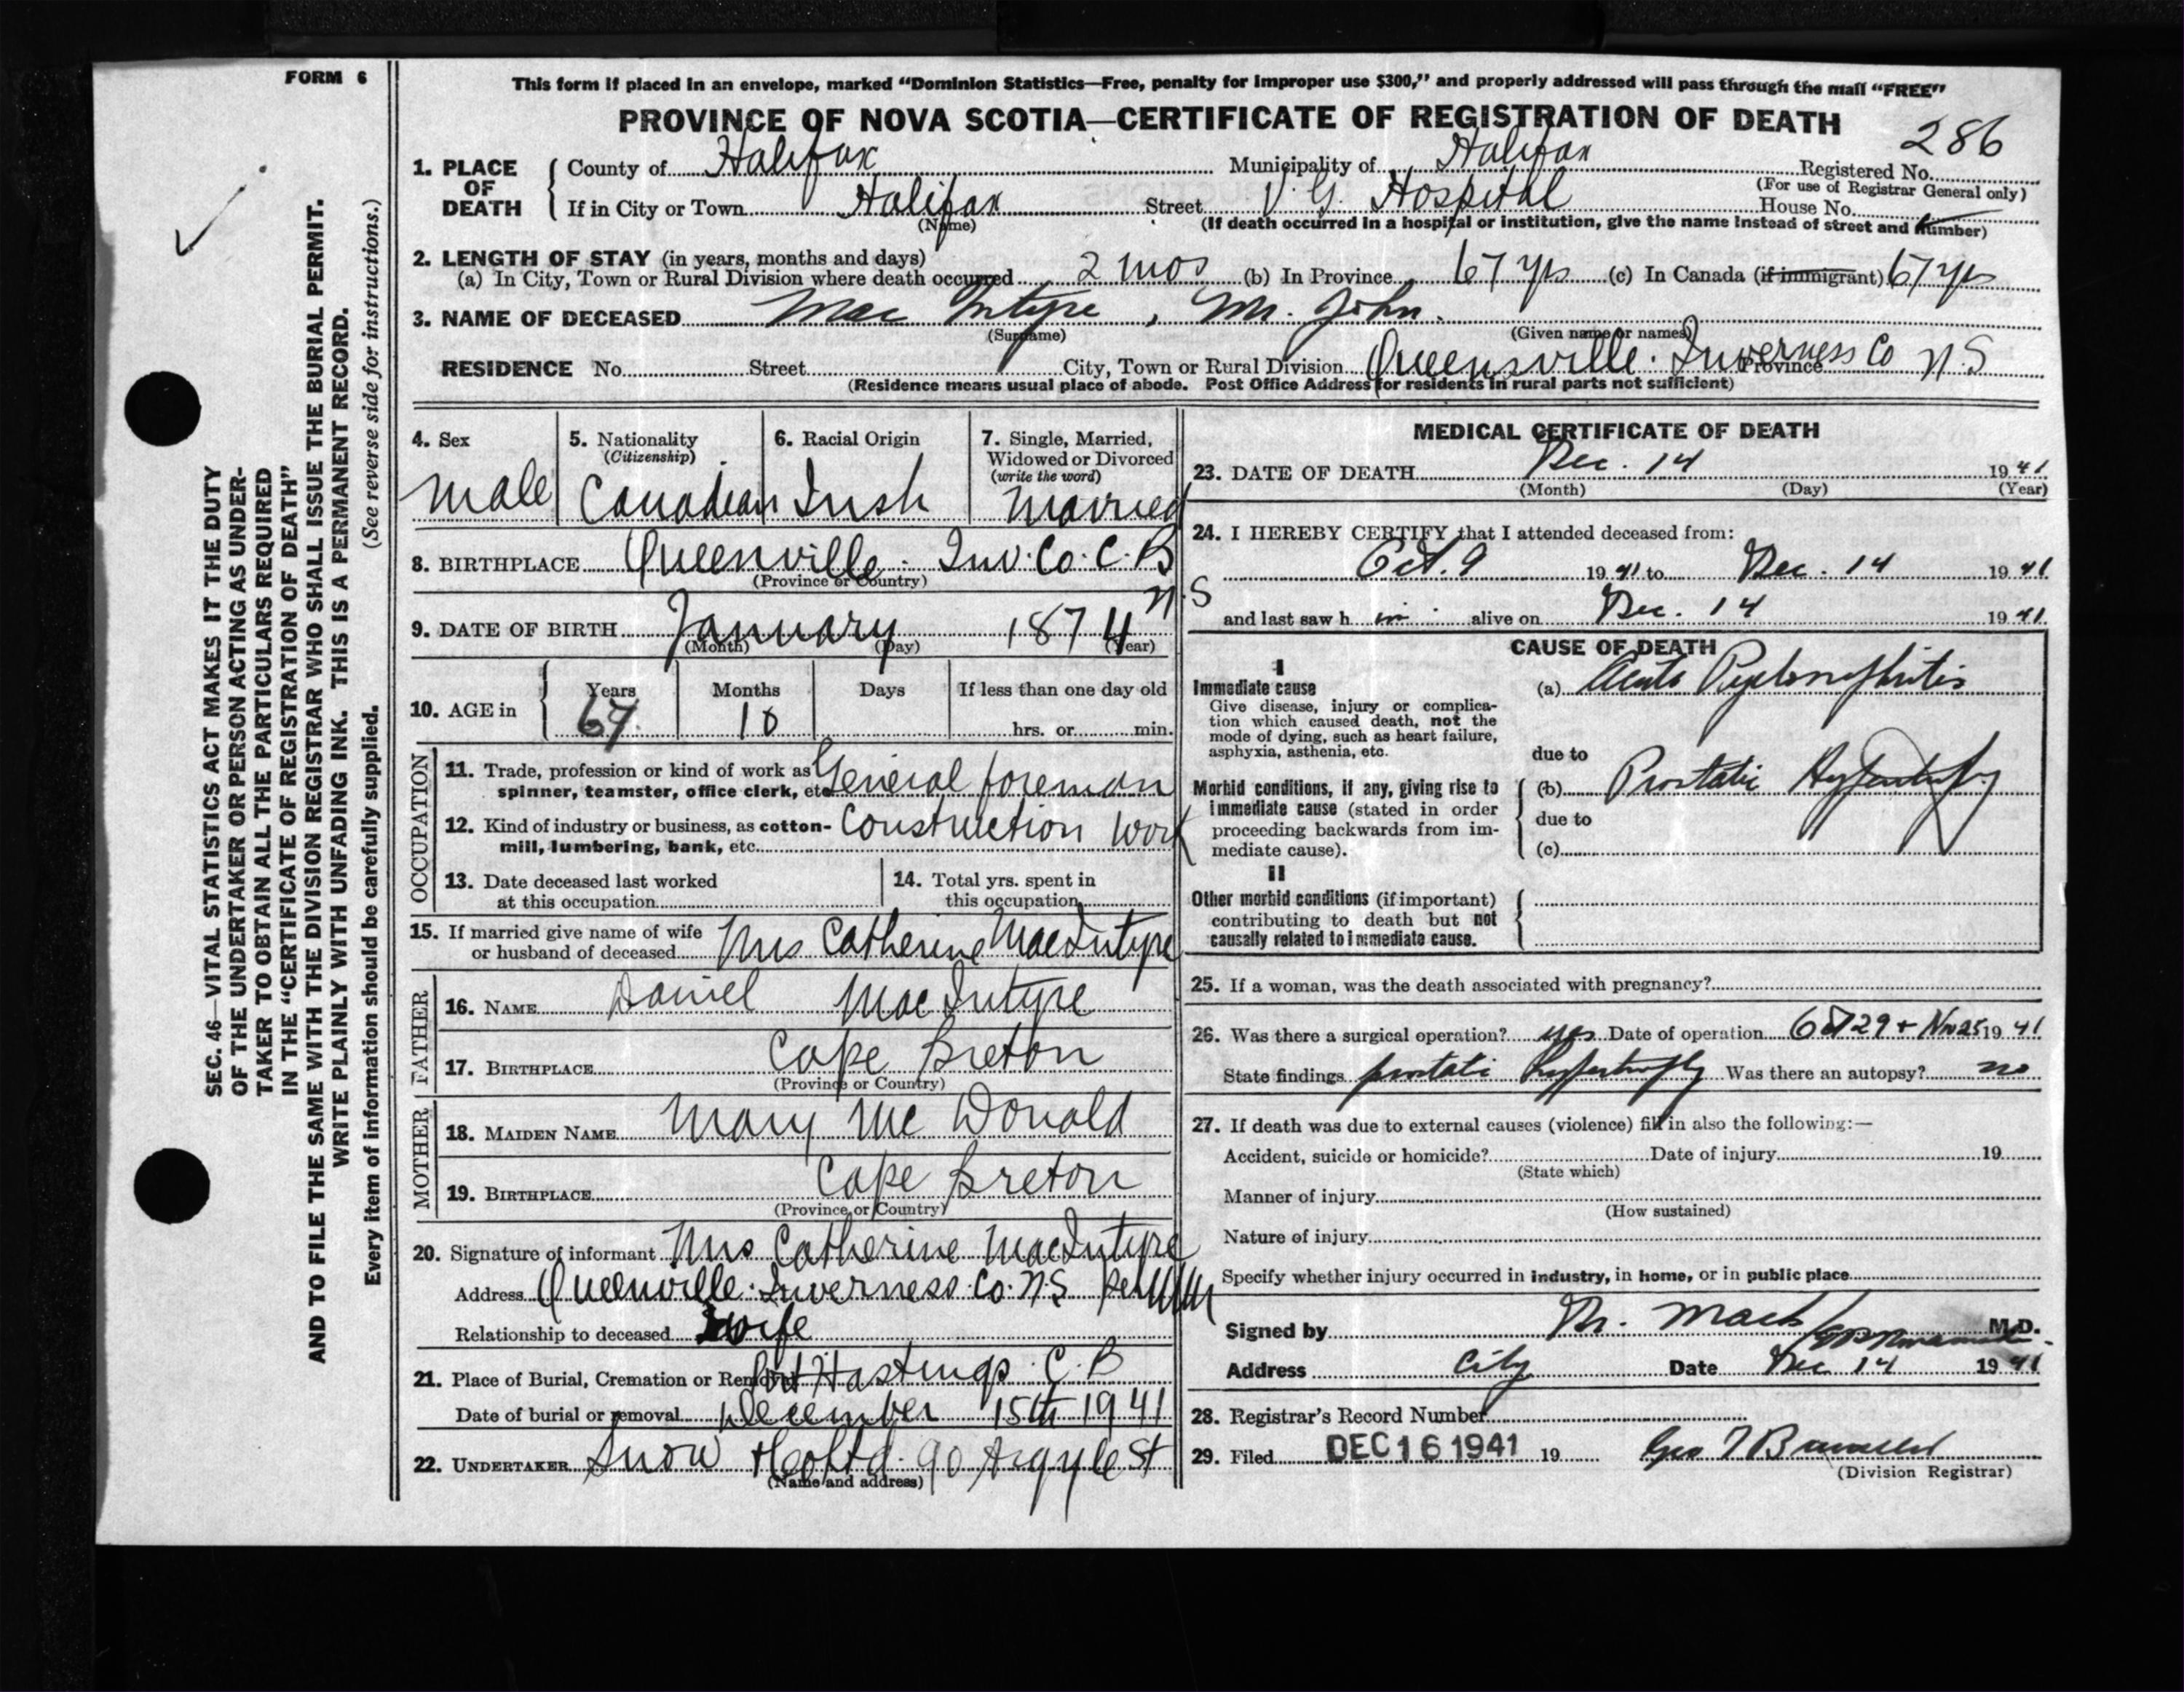 FORM 6
SEC. 46—VITAL STATISTICS ACT MAKES IT THE DUTY
OF THE UNDERTAKER OR PERSON ACTING AS UNDER-
TAKER TO OBTAIN ALL THE PARTICULARS REQUIRED
IN THE "CERTIFICATE OF REGISTRATION OF DEATH"
AND TO FILE THE SAME WITH THE DIVISION REGISTRAR WHO SHALL ISSUE THE BURIAL PERMIT.
WRITE PLAINLY WITH UNFADING INK. THIS IS A PERMANENT RECORD.
Every item of information should be carefully supplied. (See reverse side for instructions.)
This form if placed in an envelope, marked "Dominion Statistics—Free, penalty for improper use $300," and properly addressed will pass through the mail "FREE"
PROVINCE OF NOVA SCOTIA—CERTIFICATE OF REGISTRATION OF DEATH
286
1. PLACE OF DEATH County of Halifax Municipality of Halifax Registered No.
(For use of Registrar General only)
If in City or Town Halifax Street V. G. Hospital House No.
(Name) (If death occurred in a hospital or institution, give the name instead of street and number)
2. LENGTH OF STAY (in years, months and days)
(a) In City, Town or Rural Division where death occurred 2 mos (b) In Province 67 yrs (c) In Canada (if immigrant) 67 yrs
3. NAME OF DECEASED Mac Intyre, Mr. John.
(Surname) (Given name or names)
RESIDENCE No. Street City, Town or Rural Division Queensville. Inverness Co Province N.S
(Residence means usual place of abode. Post Office Address for residents in rural parts not sufficient)
4. Sex
Male
5. Nationality
(Citizenship)
Canadian
6. Racial Origin
Irish
7. Single, Married,
Widowed or Divorced
(write the word)
Married
8. BIRTHPLACE Queenville. Inv. Co. C. B
N.S
(Province or Country)
9. DATE OF BIRTH January 1874
(Month) (Day) (Year)
10. AGE in Years Months Days If less than one day old
67 10 hrs. or min.
OCCUPATION
11. Trade, profession or kind of work as General foreman
spinner, teamster, office clerk, etc
12. Kind of industry or business, as cotton- Construction Work
mill, lumbering, bank, etc.
13. Date deceased last worked
at this occupation
14. Total yrs. spent in
this occupation
15. If married give name of wife
or husband of deceased Mrs Catherine MacIntyre
FATHER
16. NAME Daniel MacIntyre
17. BIRTHPLACE Cape Breton
(Province or Country)
MOTHER
18. MAIDEN NAME Mary McDonald
19. BIRTHPLACE Cape Breton
(Province or Country)
20. Signature of informant Mrs Catherine MacIntyre
Address Queenville. Inverness. Co. N.S
Relationship to deceased wife
21. Place of Burial, Cremation or Removal Port Hastings. C. B
Date of burial or removal December 15th 1941
22. UNDERTAKER Snow & Co Ltd. 90 Argyle St
(Name and address)
MEDICAL CERTIFICATE OF DEATH
23. DATE OF DEATH Dec. 14 1941
(Month) (Day) (Year)
24. I HEREBY CERTIFY that I attended deceased from:
Oct. 9 1941 to Dec. 14 1941
and last saw h im alive on Dec. 14 1941
CAUSE OF DEATH
I
Immediate cause
Give disease, injury or complica-
tion which caused death, not the
mode of dying, such as heart failure,
asphyxia, asthenia, etc.
(a) Acute Pyelonephritis
due to
Morbid conditions, if any, giving rise to
immediate cause (stated in order
proceeding backwards from im-
mediate cause).
(b) Prostatic Hypertrophy
due to
(c)
II
Other morbid conditions (if important)
contributing to death but not
causally related to immediate cause.
25. If a woman, was the death associated with pregnancy?
26. Was there a surgical operation? yes Date of operation Oct 29 + Nov 25 1941
State findings prostatic hypertrophy Was there an autopsy? no
27. If death was due to external causes (violence) fill in also the following:—
Accident, suicide or homicide? Date of injury 19
(State which)
Manner of injury
(How sustained)
Nature of injury
Specify whether injury occurred in industry, in home, or in public place
Signed by Mack M.D.
Address City Date Dec 14 1941
28. Registrar's Record Number
29. Filed DEC 16 1941 19 Geo
(Division Registrar)